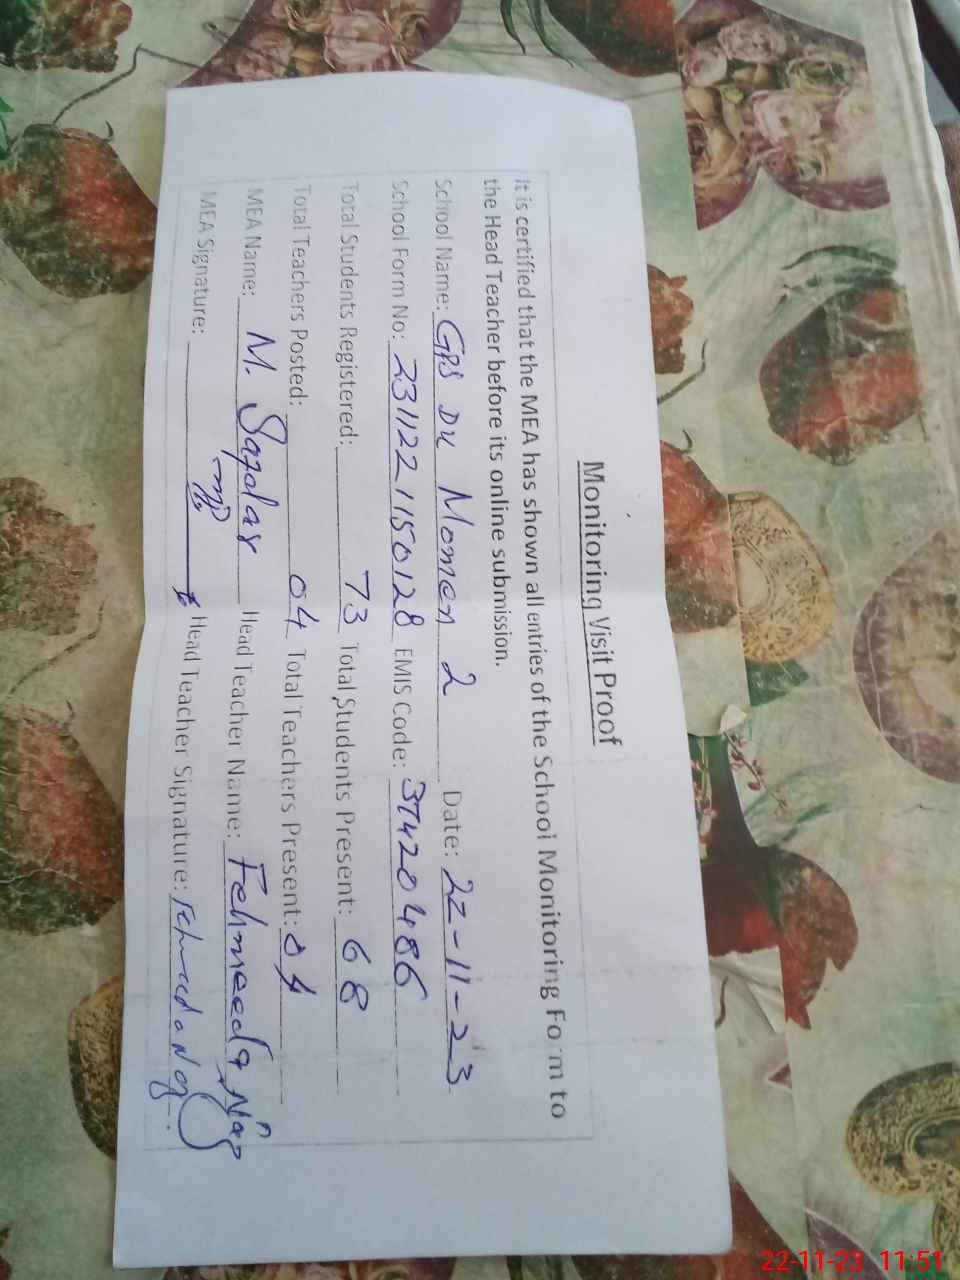 Monitoring Visit Proof
It is certified that the MEA has shown all entries of the School Monitoring Form to
the Head Teacher before its online submission.
School Name: GPS DK Momen 2 Date: 22-11-23
School Form No: 2311221150128 EMIS Code: 37420486
Total Students Registered: 73 Total Students Present: 68
Total Teachers Posted: 04 Total Teachers Present: 04
MEA Name: M. Safdar Head Teacher Name: Fehmeeda Naz
MEA Signature: Head Teacher Signature:
22-11-23 11:51